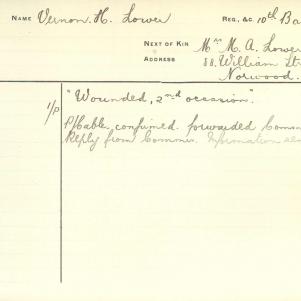 NAME Vernon H. Lower REG., &C. 10th Ba
NEXT OF KIN Mrs M. A. Lower
ADDRESS 88. William St
Norwood.
1/P "Wounded, 2nd occasion."
P/Cable, confirmed. forwarded
Reply from Commrs. Information